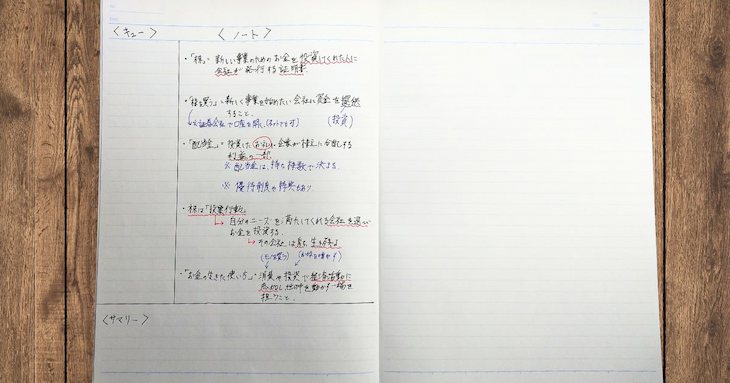 〈キュー〉
〈ノート〉
・「株」:新しい事業のためのお金を投資してくれた人に
会社が発行する証明書
・「株を買う」:新しく事業を始めたい会社に資金を提供
すること。
(投資)
※証券会社で口座を開く。(ネットでも可)
・「配当金」:投資したお礼に企業が株主に分配する
利益の一部
※ 配当金は、持ち株数で決まる。
※ 優待制度や特典もあり
・株は「投票行動」
→自分のニーズを満たしてくれる会社を選び
お金を投資する。
→その会社は育ち、生き残る
・「お金の生きた使い方」:消費や投資で経済活動に
参加し、世の中を動かす一端を
担うこと。
〈サマリー〉